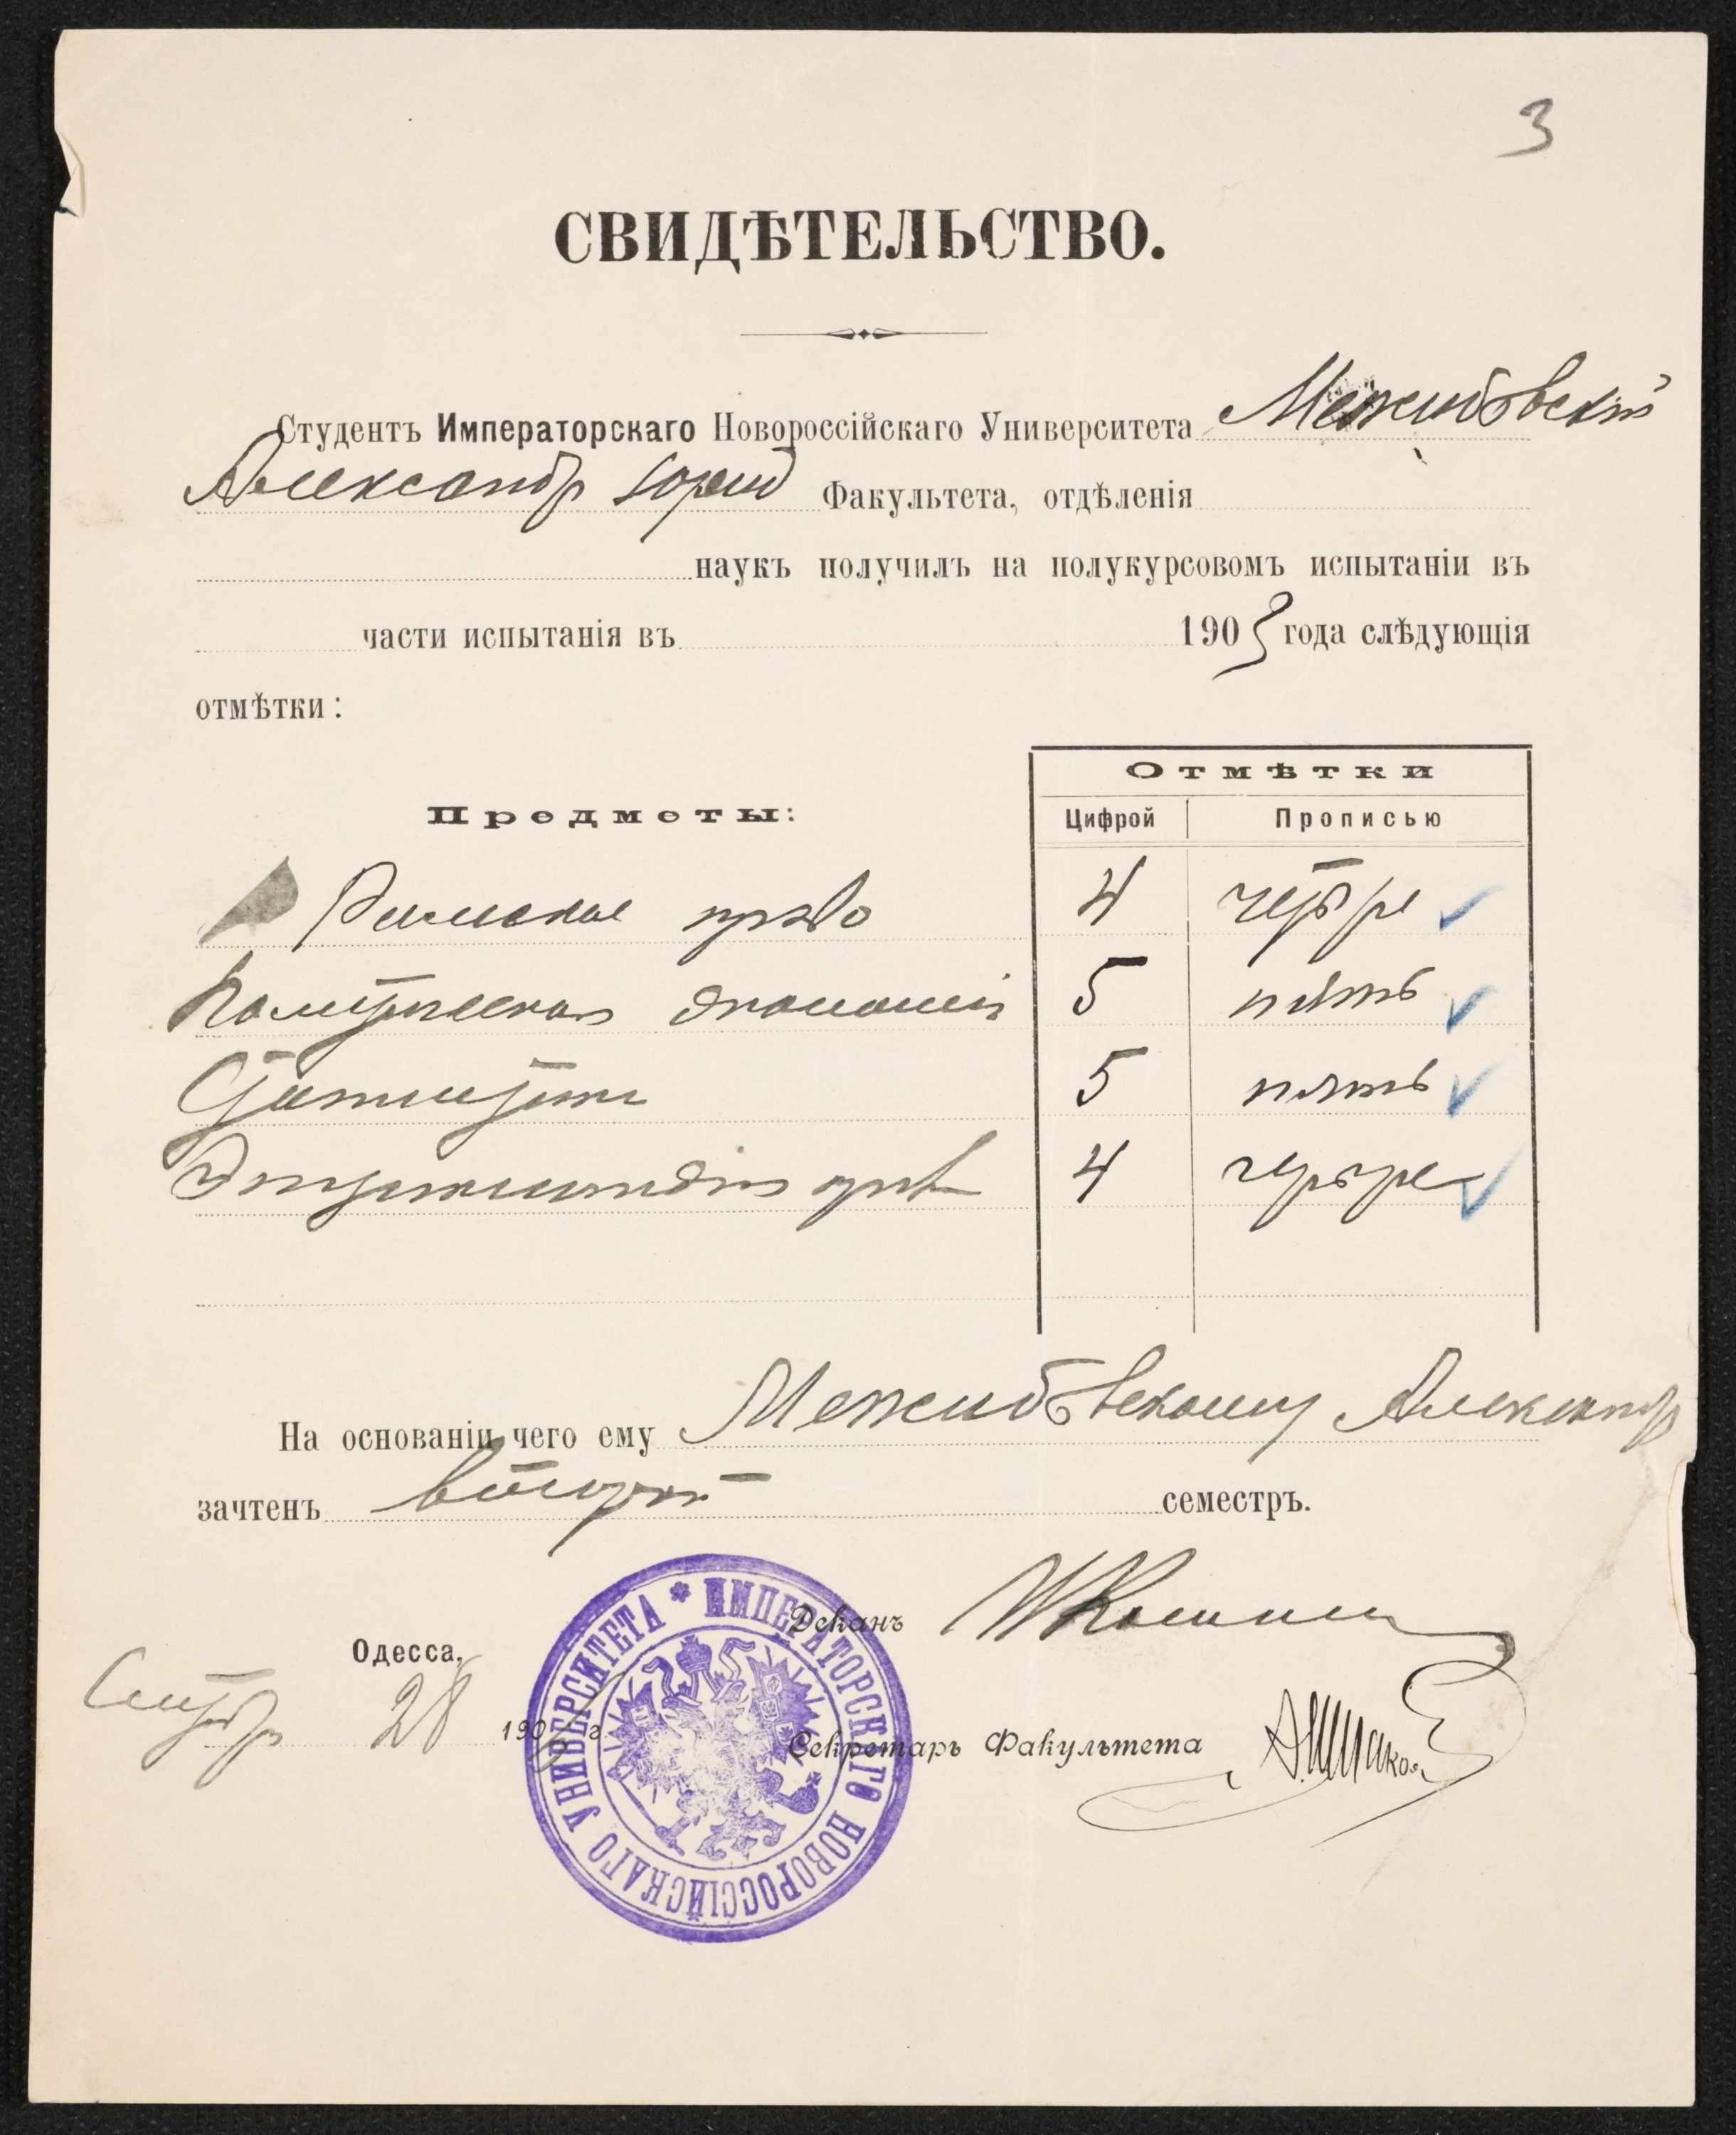 3
СВИДѢТЕЛЬСТВО.
Студентъ Императорскаго Новороссійскаго Университета Межибовскій
Александр юрид Факультета, отдѣленія
наукъ получилъ на полукурсовомъ испытаніи въ
части испытанія въ 1903 года слѣдующія
отмѣтки:
Отмѣтки
Предметы:
Цифрой Прописью
Римское право 4 четыре
Политическая экономія 5 пять
Статистика 5 пять
право 4 четыре
На основаніи чего ему Межибовскому Александр
зачтенъ второй семестръ.
Деканъ
Одесса,
28 190 г
Секретарь Факультета
ИМПЕРАТОРСКАГО НОВОРОССІЙСКАГО УНИВЕРСИТЕТА